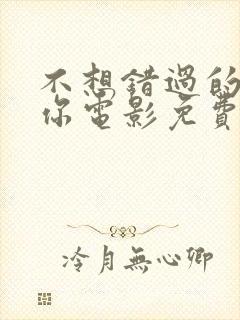 不想错过的
你电影免費
冷月無心卿